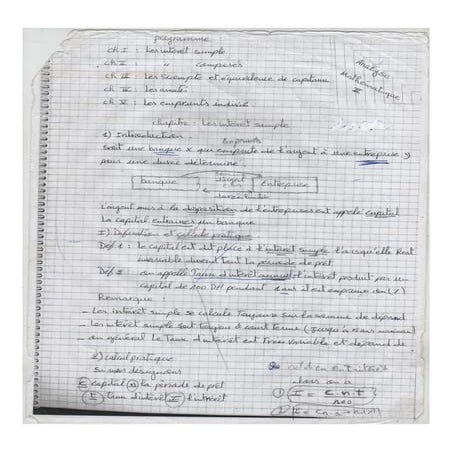 programme :
ch I : Les intérêt simple
ch II : " composés
ch III : Les escompte et équivalence de capitaux
ch IV : Les annuités
ch V : Les emprunts indivis
Analyse
Mathématique
I
chapitre : Les intérêt simple
1) Introduction
Emprunts
Soit une banque x qui emprunte de l'argent à une entreprise y
pour une durée déterminé
banque argent Entreprise
L'argent mis à la disposition de l'entreprises est appelé capital
La capital entraines un banque
I) Définition et calcule pratique
Def 1 : Le capital est dit placé à l'intérêt simple lorsqu'elle Rest
invariable durant tout la période de prêt
Def 2 : on appelle Taux d'intérêt annuel l'intérêt produit par un
capital de 100 DH pendant 1 an il est exprimé en (%)
Remarque :
_ Les intérêt simple se calcule Toujours sur la somme de départ
_ Les intérêt simple sont toujours à court terme (jusqu'à
_ en général le Taux d'intérêt est Très variable et dépend de
2) calcul pratique
si nous désignons
C capital n la période de prêt
t taux d'intérêt I l'intérêt
dans on a
① I = C.n.t